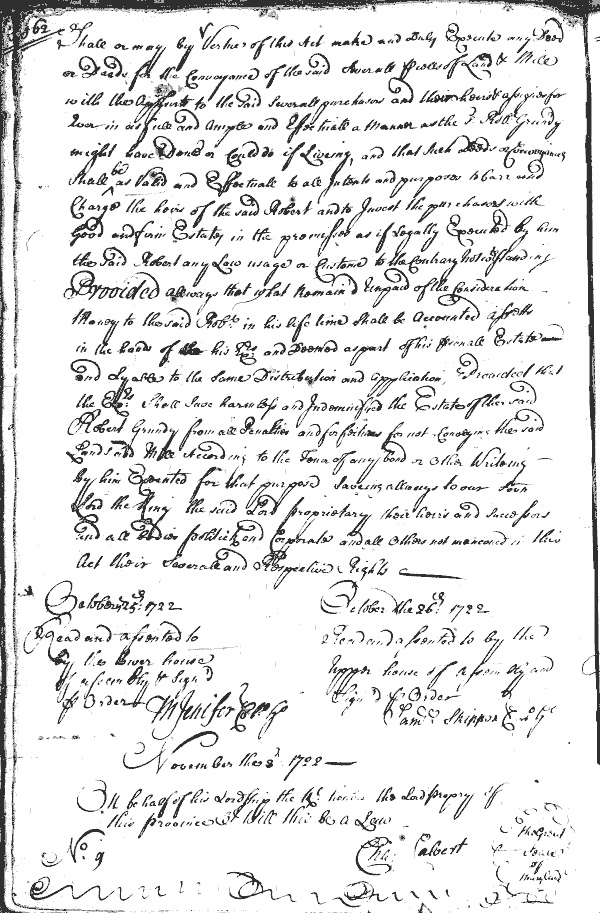 162
shall or may by Vertue of this Act make and Duly Execute any Deed
or Deeds for the Conveyance of the said Severall pieces of Land & Mill
with the Appurts to the said Severall purchasers and their heirs & assignes for
Ever in as full and Ample and Effectuall a Manner as the sd Robt Grundy
might have Done or Could do if Living, and that such Deeds or Conveyances
shall be as Valid and Effectuall to all Intents and purposes to barr and
Charge the heirs of the said Robert and to Invest the purchasers with
Good and firm Estates in the premises as if Legally Executed by him
the said Robert any Law usage or Custome to the Contrary Notwithstanding
Provided allways that what Remain'd Unpaid of the Consideration
Money to the said Robt in his life time shall be Accounted assetts
in the hands of his Exrs and Deemed as part of his personall Estate
and Lyable to the Same Distribution and application, & Provided that
the Exrs shall save harmless and Indemnified the Estate of the said
Robert Grundy from all Penalties and forfeitures for not Conveying the said
Lands and Mill According to the Tenor of any bond or Other Writeing
by him Executed for that purpose Saveing allways to our Sovn
Lord the King the said Lord proprietary their heirs and Successors
and all Bodies politick and Corporate and all Others not menconed in this
Act their Severall and Respective Rights
October 25th 1722
Read and assented to
by the Lower house
of assembly & Sign'd
p Order
MJenifer
October the 26th 1722
Read and assented to by the
upper house of assembly and
Sign'd p Order
Saml Skippon
November the 3d 1722
On behalf of his Lordship the Rt honble the Lord propry of
this province I will this be a Law
Cha: Calvert
No 9
The Great
Seale
of
Maryland